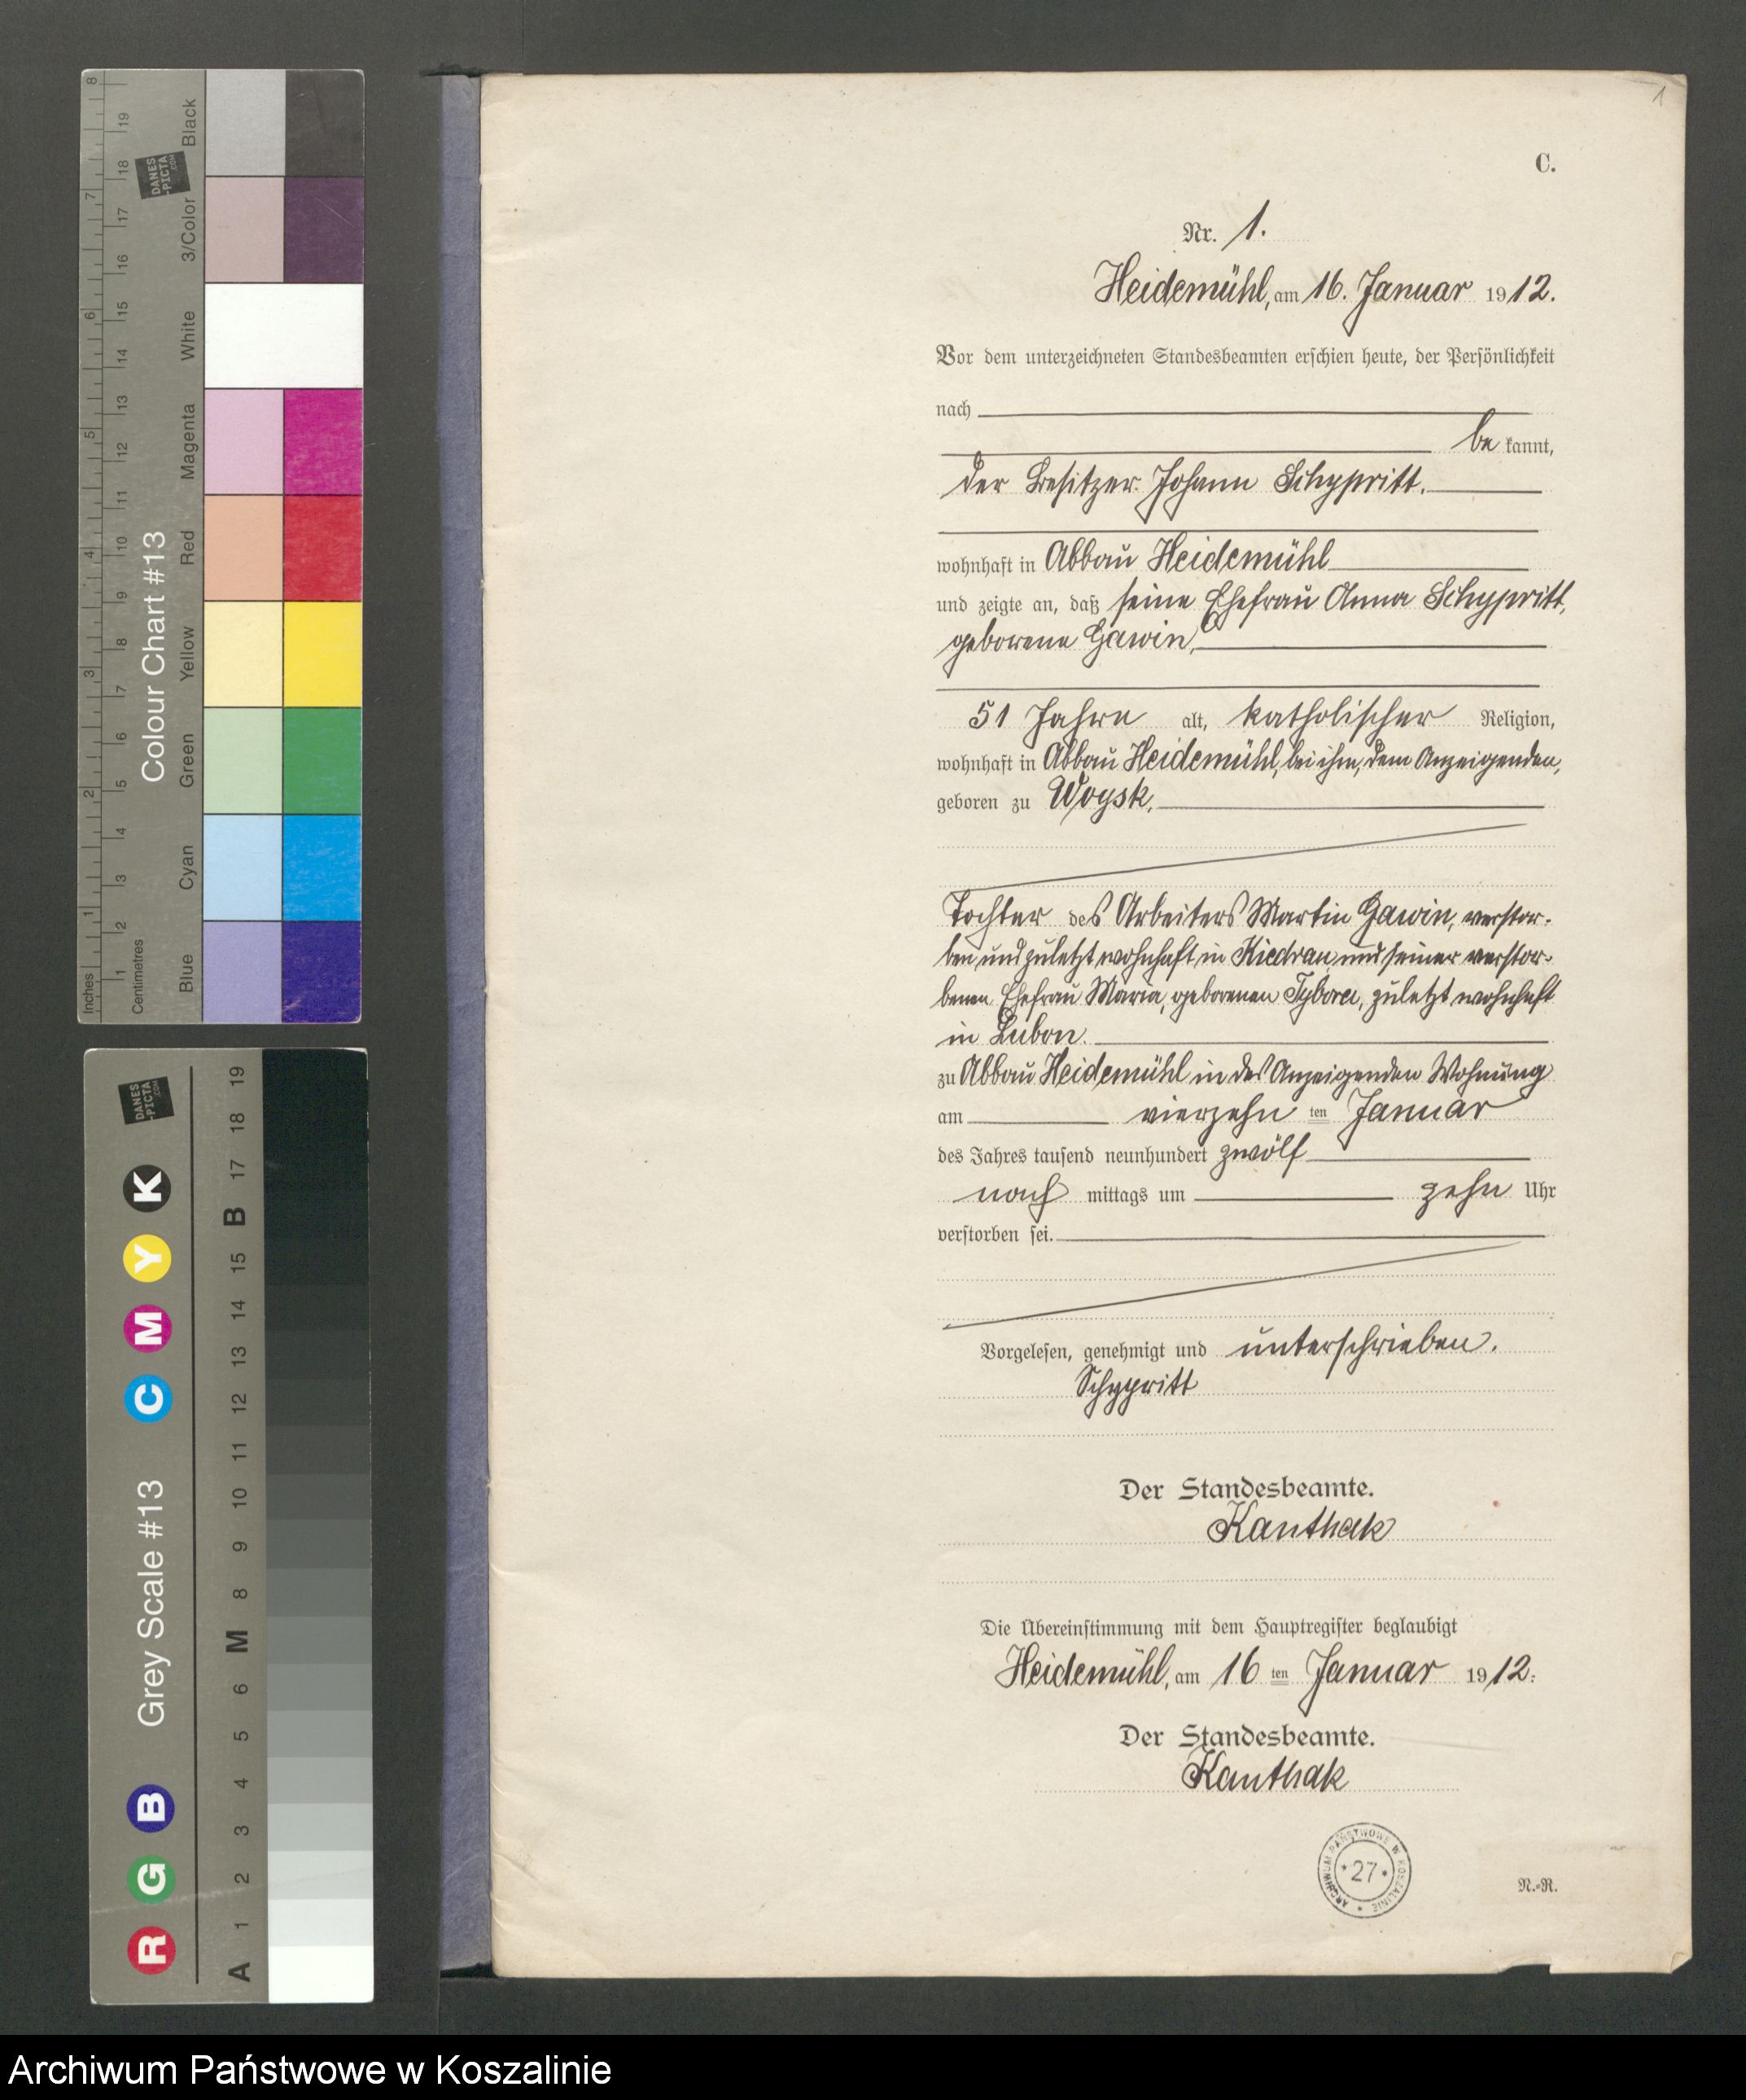 1
C.
Nr. 1.
Heidemühl, am 16. Januar 1912.
Vor dem unterzeichneten Standesbeamten erschien heute, der Persönlichkeit
nach
be kannt,
der Besitzer Johann Schypritt.
wohnhaft in Abbau Heidemühl
und zeigte an, daß seine Ehefrau Anna Schypritt,
geborene Gawin,
51 Jahre alt, katholischer Religion,
wohnhaft in Abbau Heidemühl, bei ihm, dem Anzeigenden,
geboren zu Woysk,
Tochter des Arbeiters Martin Gawin, verstor-
ben und zuletzt wohnhaft in Kiedrau und seiner verstor-
benen Ehefrau Maria, geborenen Tybora, zuletzt wohnhaft
in Lubon.
zu Abbau Heidemühl in des Anzeigenden Wohnung
am vierzehn ten Januar
des Jahres tausend neunhundert zwölf
nach mittags um zehn Uhr
verstorben sei.
Vorgelesen, genehmigt und unterschrieben.
Schypritt
Der Standesbeamte.
Kanthak
Die Übereinstimmung mit dem Hauptregister beglaubigt
Heidemühl, am 16 ten Januar 1912.
Der Standesbeamte.
Kanthak
ARCHIWUM PAŃSTWOWE W KOSZALINIE
* 27 *
N.-R.
Colour Chart #13
Blue Cyan Green Yellow Red Magenta White 3/Color Black
Inches 1 2 3 4 5 6 7 8
Centimetres 1 2 3 4 5 6 7 8 9 10 11 12 13 14 15 16 17 18 19
DANES
-PICTA
.COM
Grey Scale #13
R G B C M Y K
A 1 2 3 4 5 6 M 8 9 10 11 12 13 14 15 B 17 18 19
DANES
-PICTA
.COM
Archiwum Państwowe w Koszalinie